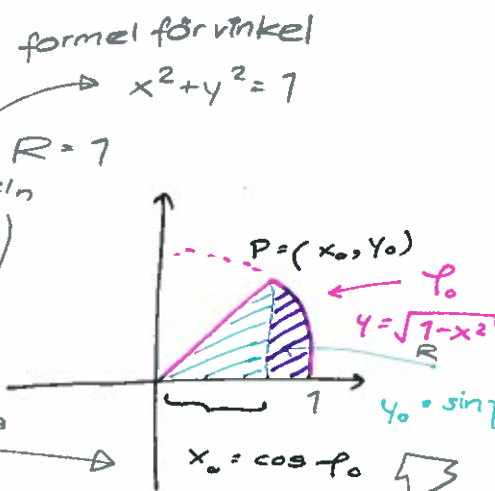 formel för vinkel
x² + y² = 1
R = 1
P = (x₀, y₀)
φ₀
y = √1-x²
R
1
y₀ = sin
x₀ = cos φ₀